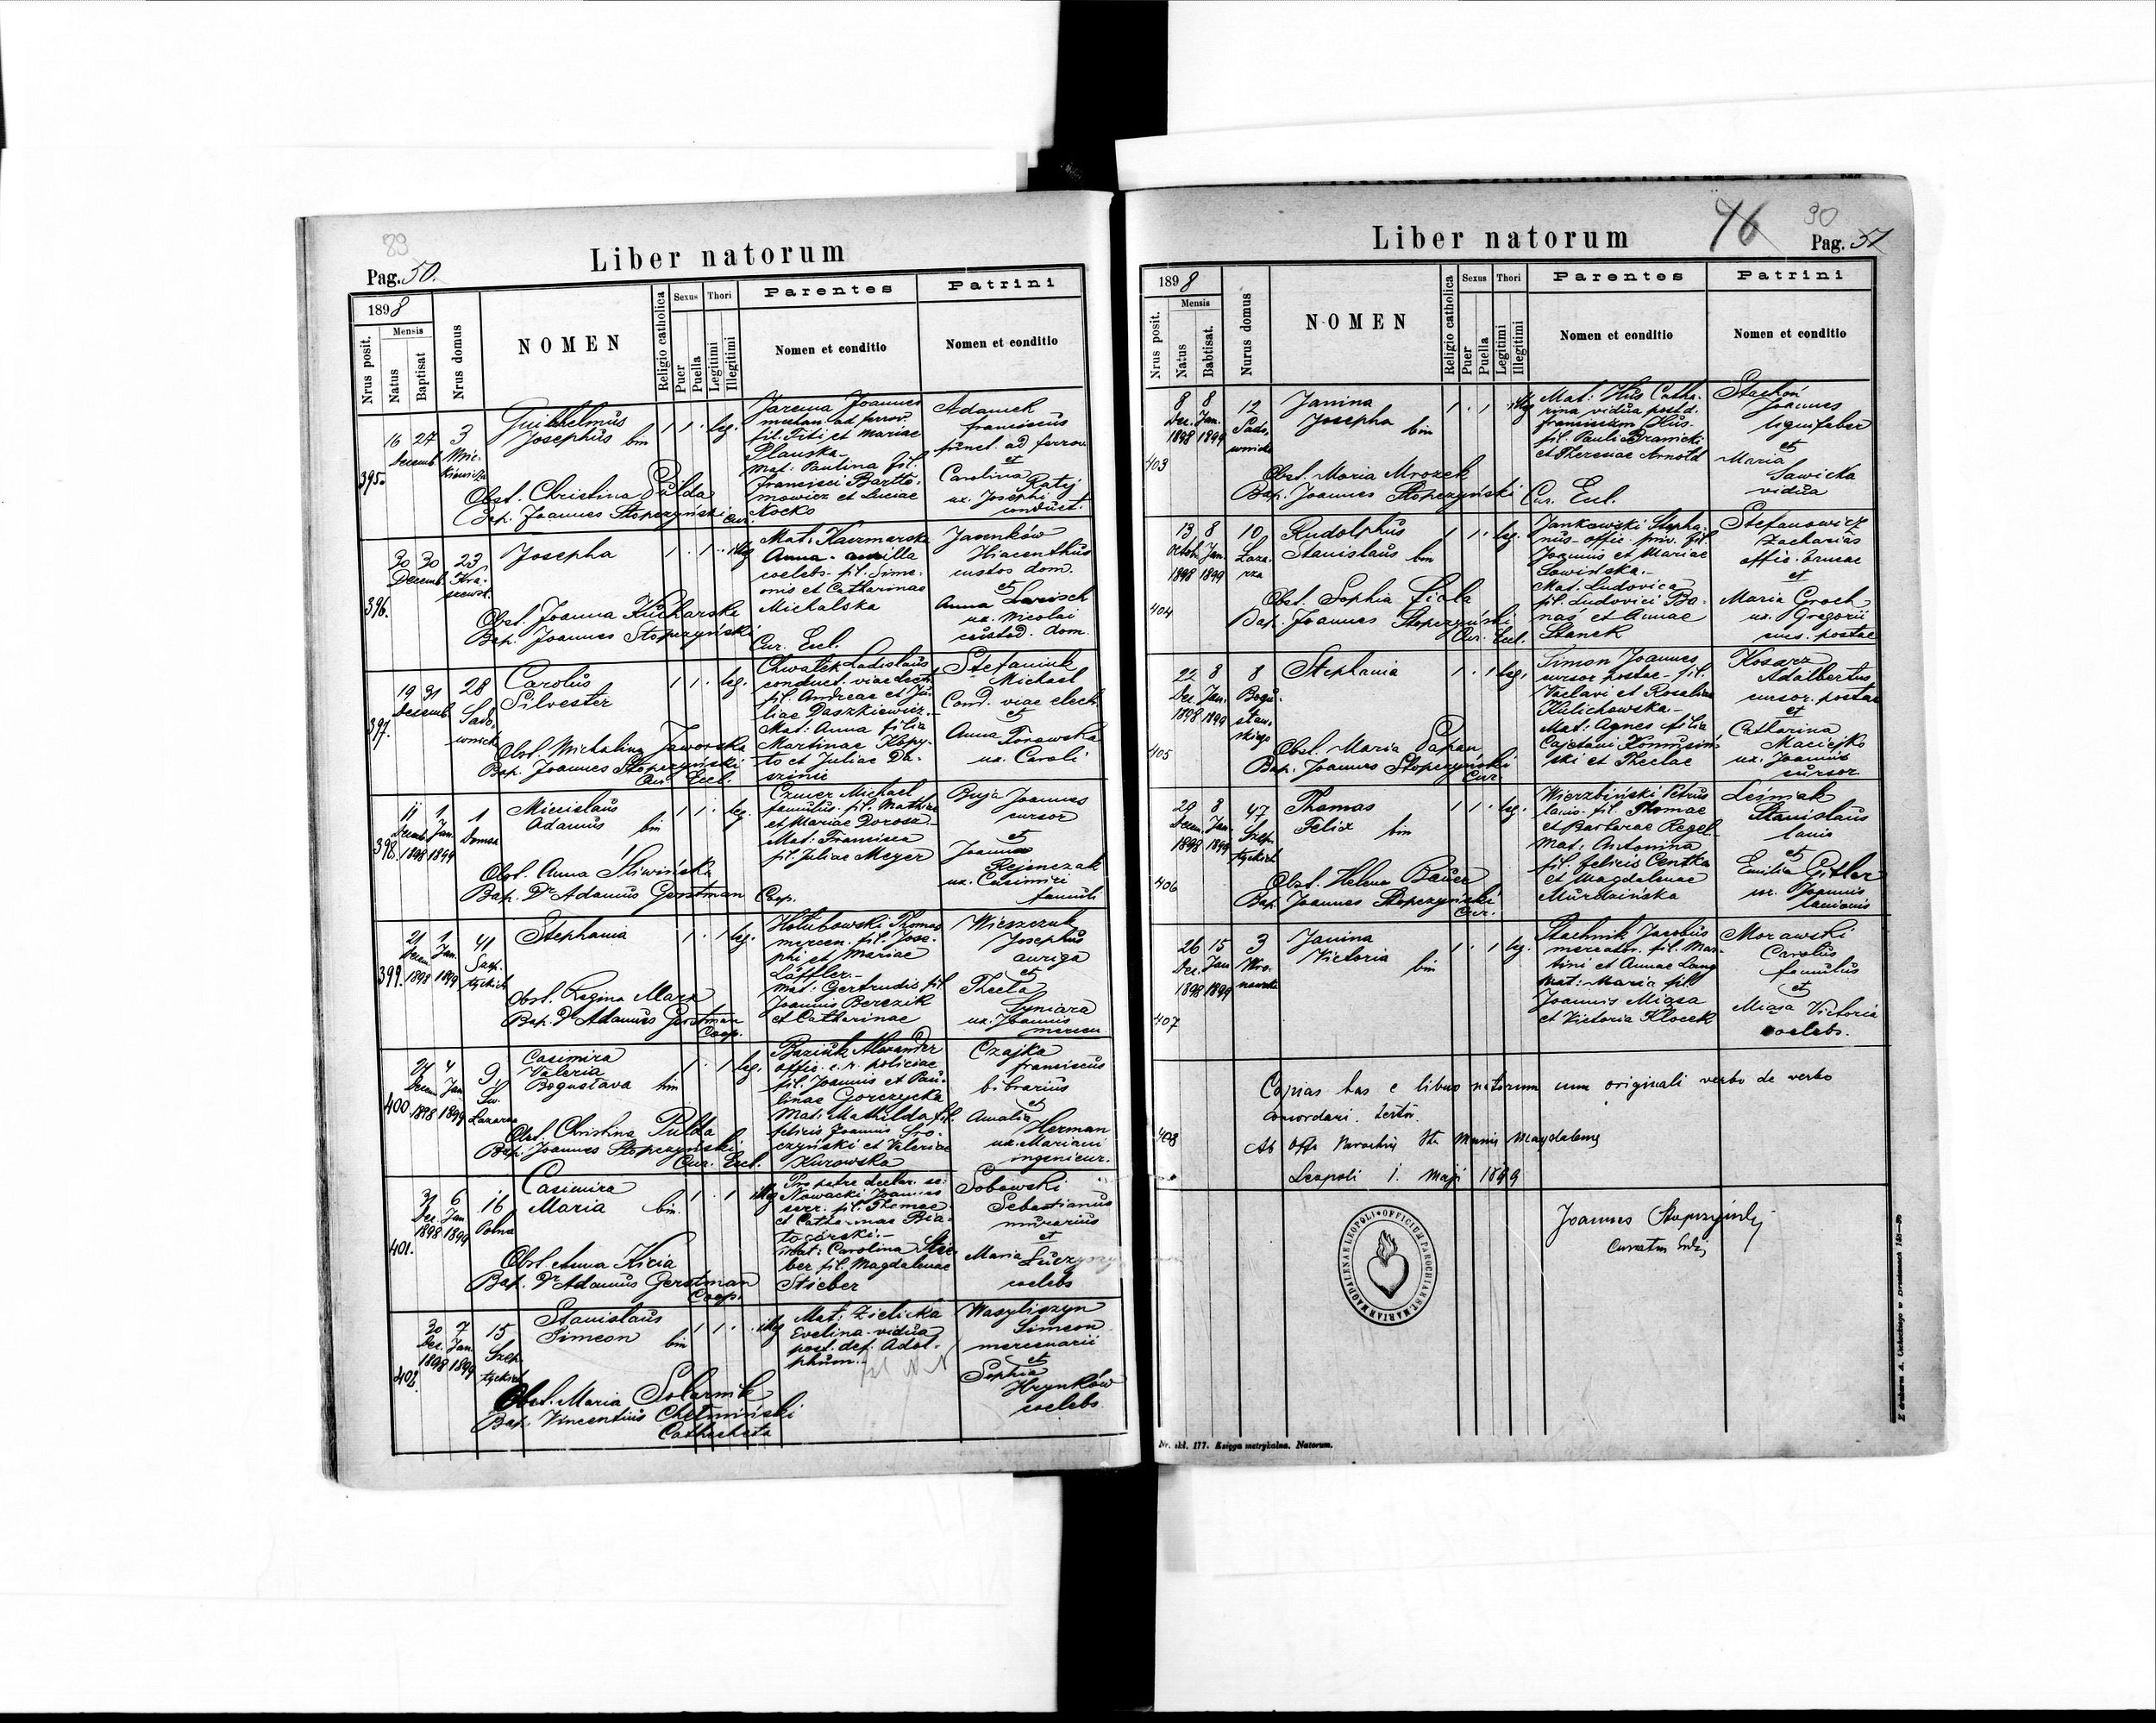 89
Liber natorum
Pag. 50.
1898
Mensis
Nrus posit.
Natus
Baptisat
Nrus domus
NOMEN
Religio catholica
Sexus
Puer
Puella
Thori
Legitimi
Illegitimi
Parentes
Nomen et conditio
Patrini
Nomen et conditio
395.
16 27
Decemb.
3
Mic-
kiewicza
Guilhelmus
Josephus bin
Obst. Christina Pulda
Bap. Joannes Stopczyński Cur.
1 1 · leg.
Jarema Joannes
mechan. ad ferrov.
fil. Titi et Mariae
Plauska-
Mat: Paulina fil.
Francisci Bartło-
mowicz et Luciae
Kocko
Adamek
Franciscus
funct. ad ferrov.
et
Carolina Ratej
ux. Josephi
conduct.
396.
30 30
Decemb.
23
Kra-
szewsk.
Josepha
Obst. Joanna Kucharska
Bap. Joannes Stopczyński
Cur. Eccl.
1 · 1 · illeg
Mat: Kaczmarska
Anna - ancilla
coelebs - fil. Sime-
onis et Catharinae
Michalska
Jasenków
Hiacenthus
custos dom.
et
Anna Lorisch
ux. Nicolai
custod. dom.
397.
19 31
Decemb.
28
Sado-
wnick
Carolus
Silvester
Obst. Michalina Jaworska
Bap. Joannes Stopczyński
Cur. Eccl.
1 1 · leg.
Chwałek Ladislaus
conduct. viae lect.
fil. Andreae et Ju-
liae Daszkiewicz.-
Mat: Anna filia
Martinae Kopy-
to et Juliae Da-
szinic
Stefaniuk
Michael
Cond. viae elect.
et
Anna Torowska
ux. Caroli
398.
11 1
Decemb. Jan.
1898 1899
1
Domsa
Miecislaus
Adamus bin
Obst. Anna Śliwińska
Bap. Dr Adamus Gerstman Coop.
1 1 · leg.
Czuwer Michael
famulus - fil. Mathiae
et Mariae Dorosz.-
Mat: Francisca
fil. Juliae Meyer
Buja Joannes
cursor
et
Joanna
Rejenczak
ux. Casimiri
famuli
399.
21 1
Decem. Jan.
1898 1899
41
Szep-
tyckich
Stephania
Obst. Regina Marx
Bap. Dr Adamus Gerstman
Coop.
1 · 1 leg.
Hołubowski Thomas
mercen. fil. Jose-
phi et Mariae
Läffler.-
Mat: Gertrudis fil
Joannis Berezik
et Catharinae
Wieszczuk
Josephus
auriga
et
Thecla
Syniara
ux. Joannis
mercen
400
27 4
Decem. Jan
1898 1899
9
Św.
Lazarza
Casimira
Valeria
Bogusłava trin
Obst. Christina Pulda
Bap. Joannes Stopczyński
Cur. Eccl.
1 · 1 leg.
Baziuk Alexander
offic. c. r. policiae
fil. Joannis et Pau-
linae Gorczycka
Mat: Mathilda fil.
felicis Joannis Sro-
czyński et Valeriae
Kurowska
Czajka
Franciscus
librarius
et
Amalia
Herman
ux. Mariani
ingenieur.
401.
31 6
Dec. Jan
1898 1899
16
Polna
Casimira
Maria bin
Obst. Anna Kicia
Bap. Dr Adamus Gerstman
Coop.
1 · 1 illeg
Pro patre declar. se:
Nowacki Joannes
serr. fil. Thomae
et Catharinae Bia-
togórski.-
Mat: Carolina Stie-
ber fil. Magdalenae
Stieber
Sobowski
Sebastianus
murarius
et
Maria
coelebs
402.
30 7
Dec. Jan.
1898 1899
15
Szep-
tyckich
Stanislaus
Simeon bin
Obst. Maria Solarnik
Bap. Vincentius Chełmiński
Catheheta
1 1 · illeg
Mat: Zielicka
Evelina - vidua
post. def. Adol-
phum.-
Wasyliszyn
Simeon
mercenarii
et
Sophia
Hrynków
coelebs
76
90
Liber natorum
Pag. 51
1898
Mensis
Nrus posit.
Natus
Babtisat.
Nurus domus
NOMEN
Religio catholica
Sexus
Puer
Puella
Thori
Legitimi
Illegitimi
Parentes
Nomen et conditio
Patrini
Nomen et conditio
403
8 8
Dec. Jan.
1898 1899
12
Sado-
wnicka
Janina
Josepha bin
Obst. Maria Mrozek
Bap. Joannes Stopczyński Cur. Eccl.
1 · 1 illeg
Mat: Hus Catha-
rina vidua post d.
franciscum Hus.
fil. Pauli Branicki
et Theresae Arnold
Stachoń
Joannes
lignifaber
et
Maria
Sawicka
vidua
404
13 8
Octob. Jan.
1898 1899
10
Laza-
rza
Rudolphus
Stanislaus bin
Obst. Sophia Fiala
Bap. Joannes Stopczyński
Cur. Eccl.
1 1 · leg.
Jankowski Stepha-
nus - offic. priv. fil.
Joannis et Mariae
Sowińska.-
Mat. Ludovica
fil. Ludovici Ba-
nas et Annae
Stanek
Stefanowicz
Zacharias
offic.
et
Maria Groch
ux. Gregorii
curs. postae
405
22 8
Dec. Jan.
1898 1899
8
Bogu-
sław-
skiego
Stephania
Obst. Maria Papan
Bap. Joannes Stopczyński
Cur.
1 · 1 leg.
Simon Joannes
cursor postae - fil.
Vaclavi et Rosaliae
Kulichowska-
Mat: Agnes filia
Cajetani Komusiń-
ski et Theclae
Kosarz
Adalbertus
cursor. postae
et
Catharina
Maciejko
ux. Joannis
cursor.
406
29 8
Decem. Jan.
1898 1899
47
Szep-
tyckich
Thomas
Felix bin
Obst. Helena Bauer
Bap. Joannes Stopczyński
Cur.
1 1 · leg.
Wierzbiński Petrus
lanio - fil. Thomae
et Barbarae Regel.-
Mat. Antonina
fil. felicis Centka
et Magdalenae
Murdzińska
Leśniak
Stanislaus
lanio
et
Emilia Gitler
ux. Joannis
lanionis
407
26 15
Dec. Jan
1898 1899
3
Wro-
nowska
Janina
Victoria bin
1 · 1 leg.
Stachnik Jacobus
mercator. fil. Mar-
tini et Annae Lang
Mat: Maria fil
Joannis Miąsa
et Victoria Klocek
Morawski
Carolus
famulus
et
Miąsa Victoria
coelebs.
408
Copias has e libro natorum cum originali verbo de verbo
concordari testor.
Ab Offo Parochiae Stae Mariae Magdalenae
Leopoli 1. Maji 1899
Joannes Stopczyński
Curatus Eccl.
OFFICIUM PAROCHIAE ST. MARIAE MAGDALENAE LEOPOLI
Nr. skł. 177. Księga metrykalna. Natorum.